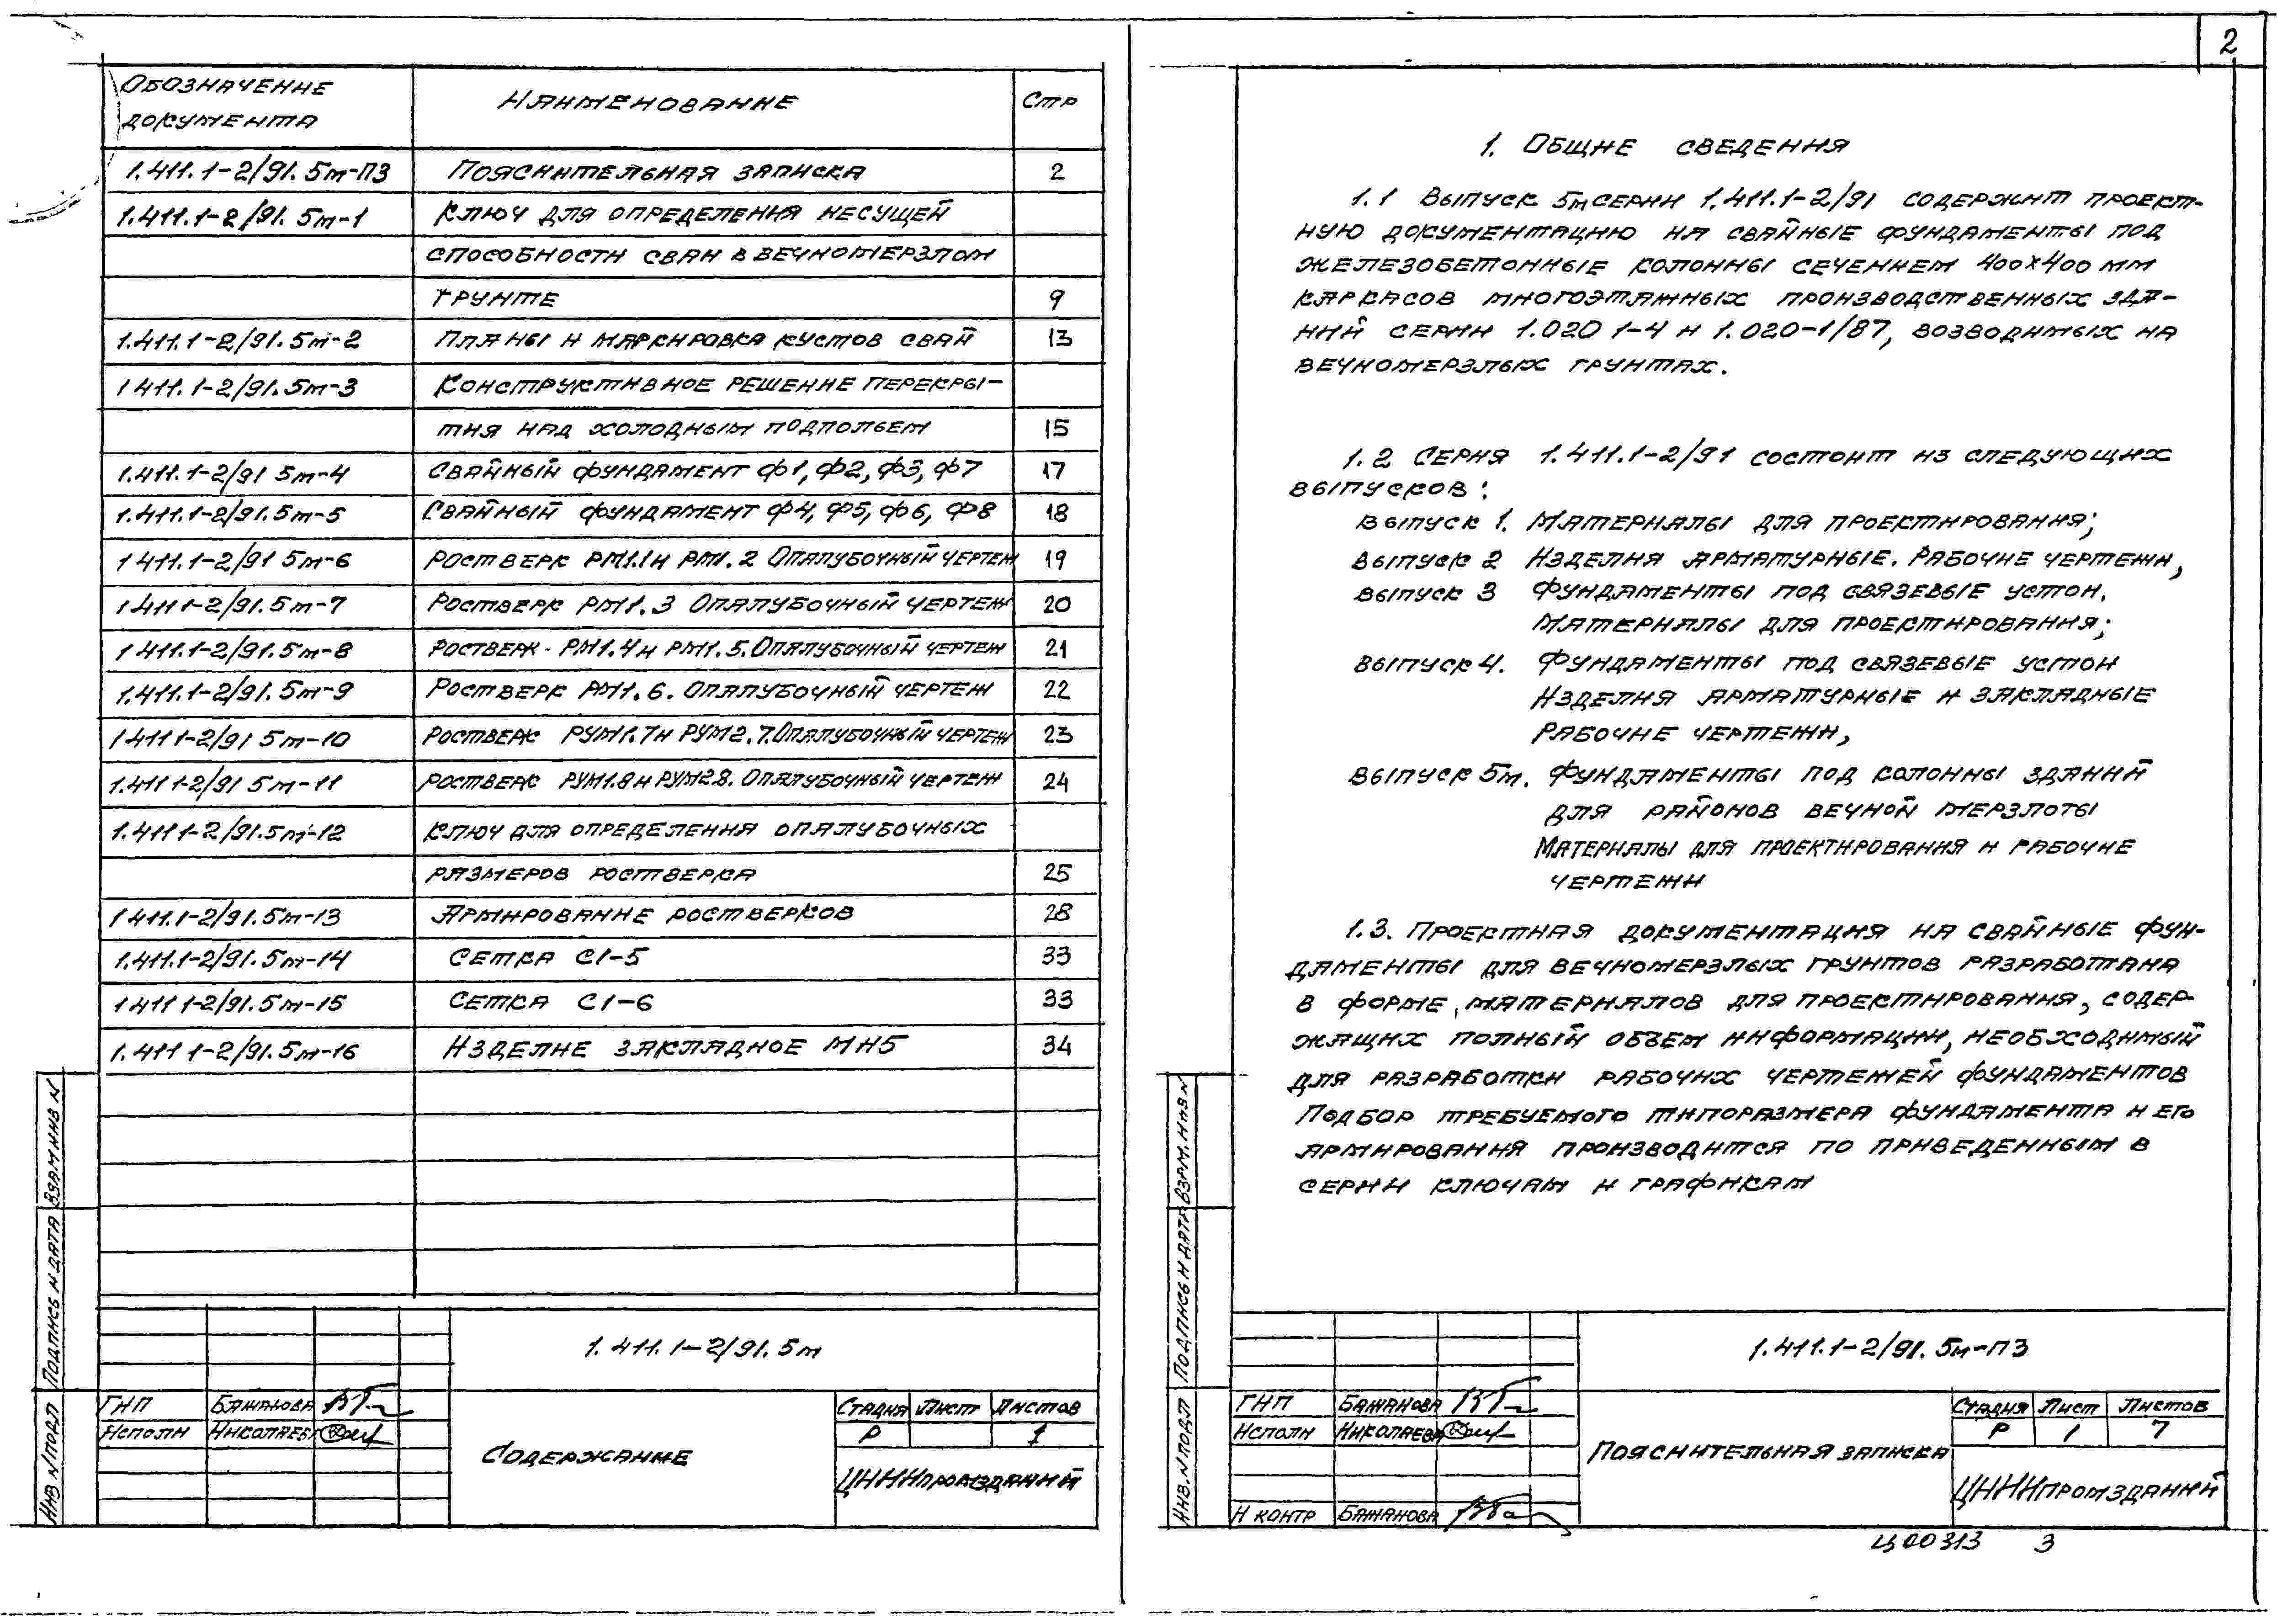 Обозначение документа Наименование Стр
1.411.1-2/91.5м-ПЗ Пояснительная записка 2
1.411.1-2/91.5м-1 Ключ для определения несущей
способности сваи в вечномерзлом
грунте 9
1.411.1-2/91.5м-2 Планы и маркировка кустов свай 13
1 411.1-2/91.5м-3 Конструктивное решение перекры-
тия над холодным подпольем 15
1.411.1-2/91 5м-4 Свайный фундамент Ф1, Ф2, Ф3, Ф7 17
1.411.1-2/91.5м-5 Свайный фундамент Ф4, Ф5, Ф6, Ф8 18
1 411.1-2/91 5м-6 Ростверк РМ1.1и РМ1.2 Опалубочный чертеж 19
1 411 1-2/91.5м-7 Ростверк РМ1.3 Опалубочный чертеж 20
1 411.1-2/91.5м-8 Ростверк РМ1.4и РМ1.5.Опалубочный чертеж 21
1.411.1-2/91.5м-9 Ростверк РМ1.6. Опалубочный чертеж 22
1 411 1-2/91 5м-10 Ростверк РУМ1.7и РУМ2.7.Опалубочный чертеж 23
1.411 1-2/91 5м-11 Ростверк РУМ1.8и РУМ2.8. Опалубочный чертеж 24
1.411 1-2/91.5м-12 Ключ для определения опалубочных
размеров ростверка 25
1 411.1-2/91.5м-13 Армирование ростверков 28
1.411.1-2/91.5м-14 Сетка С1-5 33
1 411 1-2/91.5м-15 Сетка С1-6 33
1.411 1-2/91.5м-16 Изделие закладное МН5 34
Инв N подл Подпись и дата Взам инв N
1.411.1-2/91.5м
ГИП Бажанова
Исполн Николаева
Содержание
Стадия Лист Листов
Р 1
ЦНИИпромзданий
2
1. Общие сведения
1.1 Выпуск 5м серии 1.411.1-2/91 содержит проект-
ную документацию на свайные фундаменты под
железобетонные колонны сечением 400х400 мм
каркасов многоэтажных производственных зда-
ний серии 1.020 1-4 и 1.020-1/87, возводимых на
вечномерзлых грунтах.
1.2 Серия 1.411.1-2/91 состоит из следующих
выпусков:
выпуск 1. Материалы для проектирования;
выпуск 2 Изделия арматурные. Рабочие чертежи,
выпуск 3 Фундаменты под связевые устои.
Материалы для проектирования;
выпуск 4. Фундаменты под связевые устои
Изделия арматурные и закладные
Рабочие чертежи,
выпуск 5м. Фундаменты под колонны зданий
для районов вечной мерзлоты
Материалы для проектирования и рабочие
чертежи
1.3. Проектная документация на свайные фун-
даменты для вечномерзлых грунтов разработана
в форме материалов для проектирования, содер-
жащих полный объем информации, необходимый
для разработки рабочих чертежей фундаментов
Подбор требуемого типоразмера фундамента и его
армирования производится по приведенным в
серии ключам и графикам
Инв. N подл Подпись и дата Взам. инв N
1.411.1-2/91.5м-ПЗ
ГИП Бажанова
Исполн Николаева
Н контр Бажанова
Пояснительная записка
Стадия Лист Листов
Р 1 7
ЦНИИпромзданий
Ц00313 3